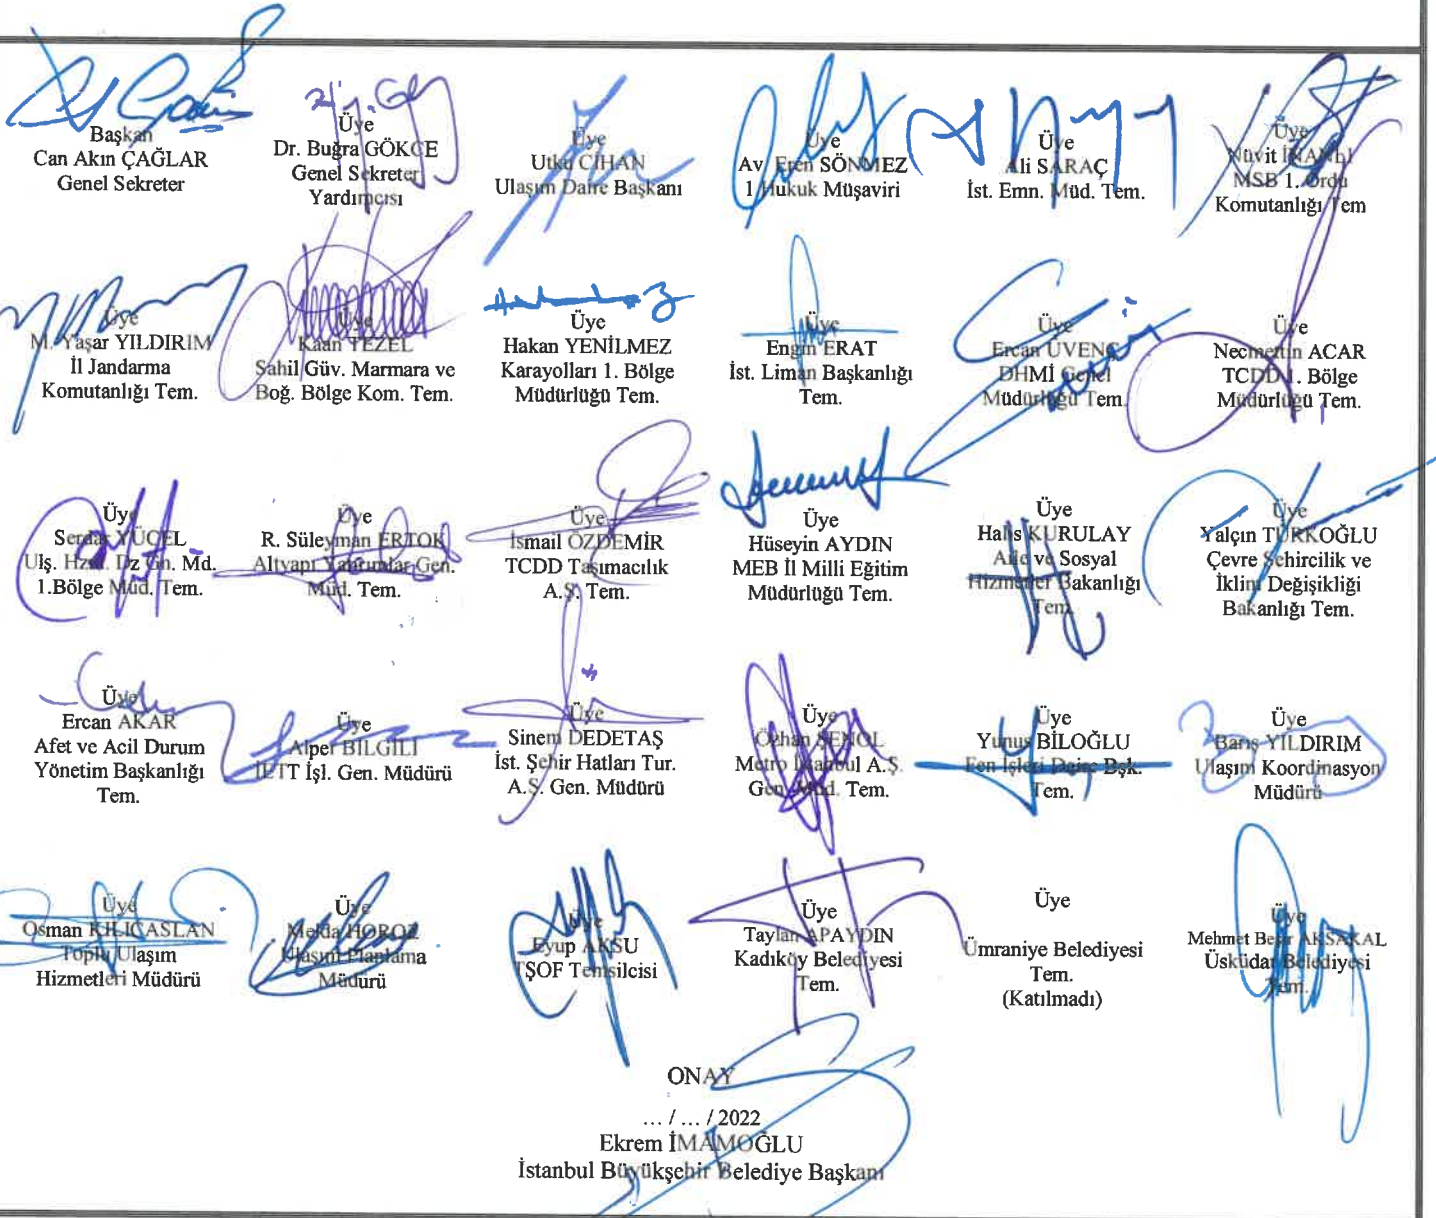 Başkan
Can Akın ÇAĞLAR
Genel Sekreter
Üye
Dr. Buğra GÖKCE
Genel Sekreter
Yardımcısı
Üye
Utku CİHAN
Ulaşım Daire Başkanı
Üye
Av Eren SÖNMEZ
1.Hukuk Müşaviri
Üye
Ali SARAÇ
İst. Emn. Müd. Tem.
Üye
Nüvit İNANLI
MSB 1. Ordu
Komutanlığı Tem
Üye
M. Yaşar YILDIRIM
İl Jandarma
Komutanlığı Tem.
Üye
Kaan TEZEL
Sahil Güv. Marmara ve
Boğ. Bölge Kom. Tem.
Üye
Hakan YENİLMEZ
Karayolları 1. Bölge
Müdürlüğü Tem.
Üye
Engin ERAT
İst. Liman Başkanlığı
Tem.
Üye
Ercan ÜVENÇ
DHMİ Genel
Müdürlüğü Tem.
Üye
Necmettin ACAR
TCDD 1. Bölge
Müdürlüğü Tem.
Üye
Serdar YÜCEL
Ulş. Hzm. Dz Gn. Md.
1.Bölge Müd. Tem.
Üye
R. Süleyman ERTOK
Altyapı Yatırımlar Gen.
Müd. Tem.
Üye
İsmail ÖZDEMİR
TCDD Taşımacılık
A.Ş. Tem.
Üye
Hüseyin AYDIN
MEB İl Milli Eğitim
Müdürlüğü Tem.
Üye
Halis KURULAY
Aile ve Sosyal
Hizmetler Bakanlığı
Tem.
Üye
Yalçın TÜRKOĞLU
Çevre Şehircilik ve
İklim Değişikliği
Bakanlığı Tem.
Üye
Ercan AKAR
Afet ve Acil Durum
Yönetim Başkanlığı
Tem.
Üye
Alper BİLGİLİ
İETT İşl. Gen. Müdürü
Üye
Sinem DEDETAŞ
İst. Şehir Hatları Tur.
A.Ş. Gen. Müdürü
Üye
Özhan ŞENOL
Metro İstanbul A.Ş.
Gen. Müd. Tem.
Üye
Yunus BİLOĞLU
Fen İşleri Daire Bşk.
Tem.
Üye
Barış YILDIRIM
Ulaşım Koordinasyon
Müdürü
Üye
Osman KILIÇASLAN
Toplu Ulaşım
Hizmetleri Müdürü
Üye
Melda HOROZ
Ulaşım Planlama
Müdürü
Üye
Eyup AKSU
TŞOF Temsilcisi
Üye
Taylan APAYDIN
Kadıköy Belediyesi
Tem.
Üye
Ümraniye Belediyesi
Tem.
(Katılmadı)
Üye
Mehmet Beşir AKSAKAL
Üsküdar Belediyesi
Tem.
ONAY
... / ... / 2022
Ekrem İMAMOĞLU
İstanbul Büyükşehir Belediye Başkanı